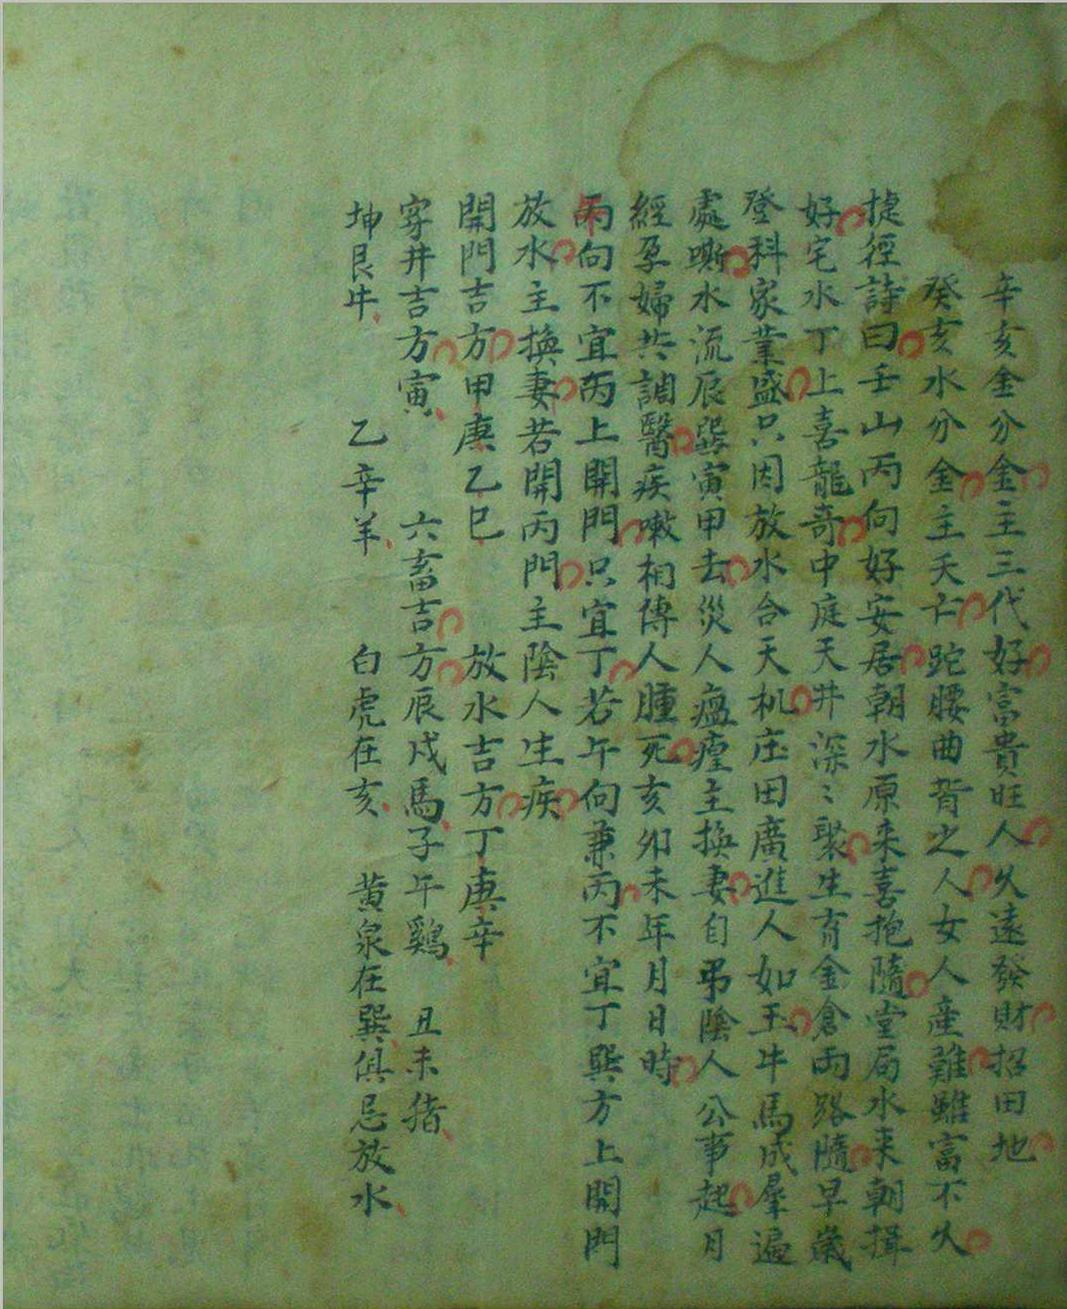 辛亥金分金主三代好富貴旺人久遠發財招田地
癸亥水分金主夭亡跎腰曲背之人女人產難雖富不久
捷徑詩曰壬山丙向好安居朝水原来喜抱隨堂局水来朝揖
好宅水丁上喜龍奇中庭天井深〻聚生育金倉兩路隨早歲
登科家業盛只因放水合天机庄田廣進人如玉牛馬成羣遍
處嘶水流辰巽寅甲去災人瘟瘴主換妻自弔陰人公事起月
經孕婦共調醫疾嗽相傳人腫死亥卯未年月日時
丙向不宜丙上開門只宜丁若午向兼丙不宜丁巽方上開門
放水主換妻若開丙門主陰人生疾
開門吉方甲庚乙巳 放水吉方丁庚辛
穿井吉方寅 六畜吉方辰戍馬子午鷄 丑未猪
坤艮牛 乙辛羊 白虎在亥 黄泉在巽俱忌放水